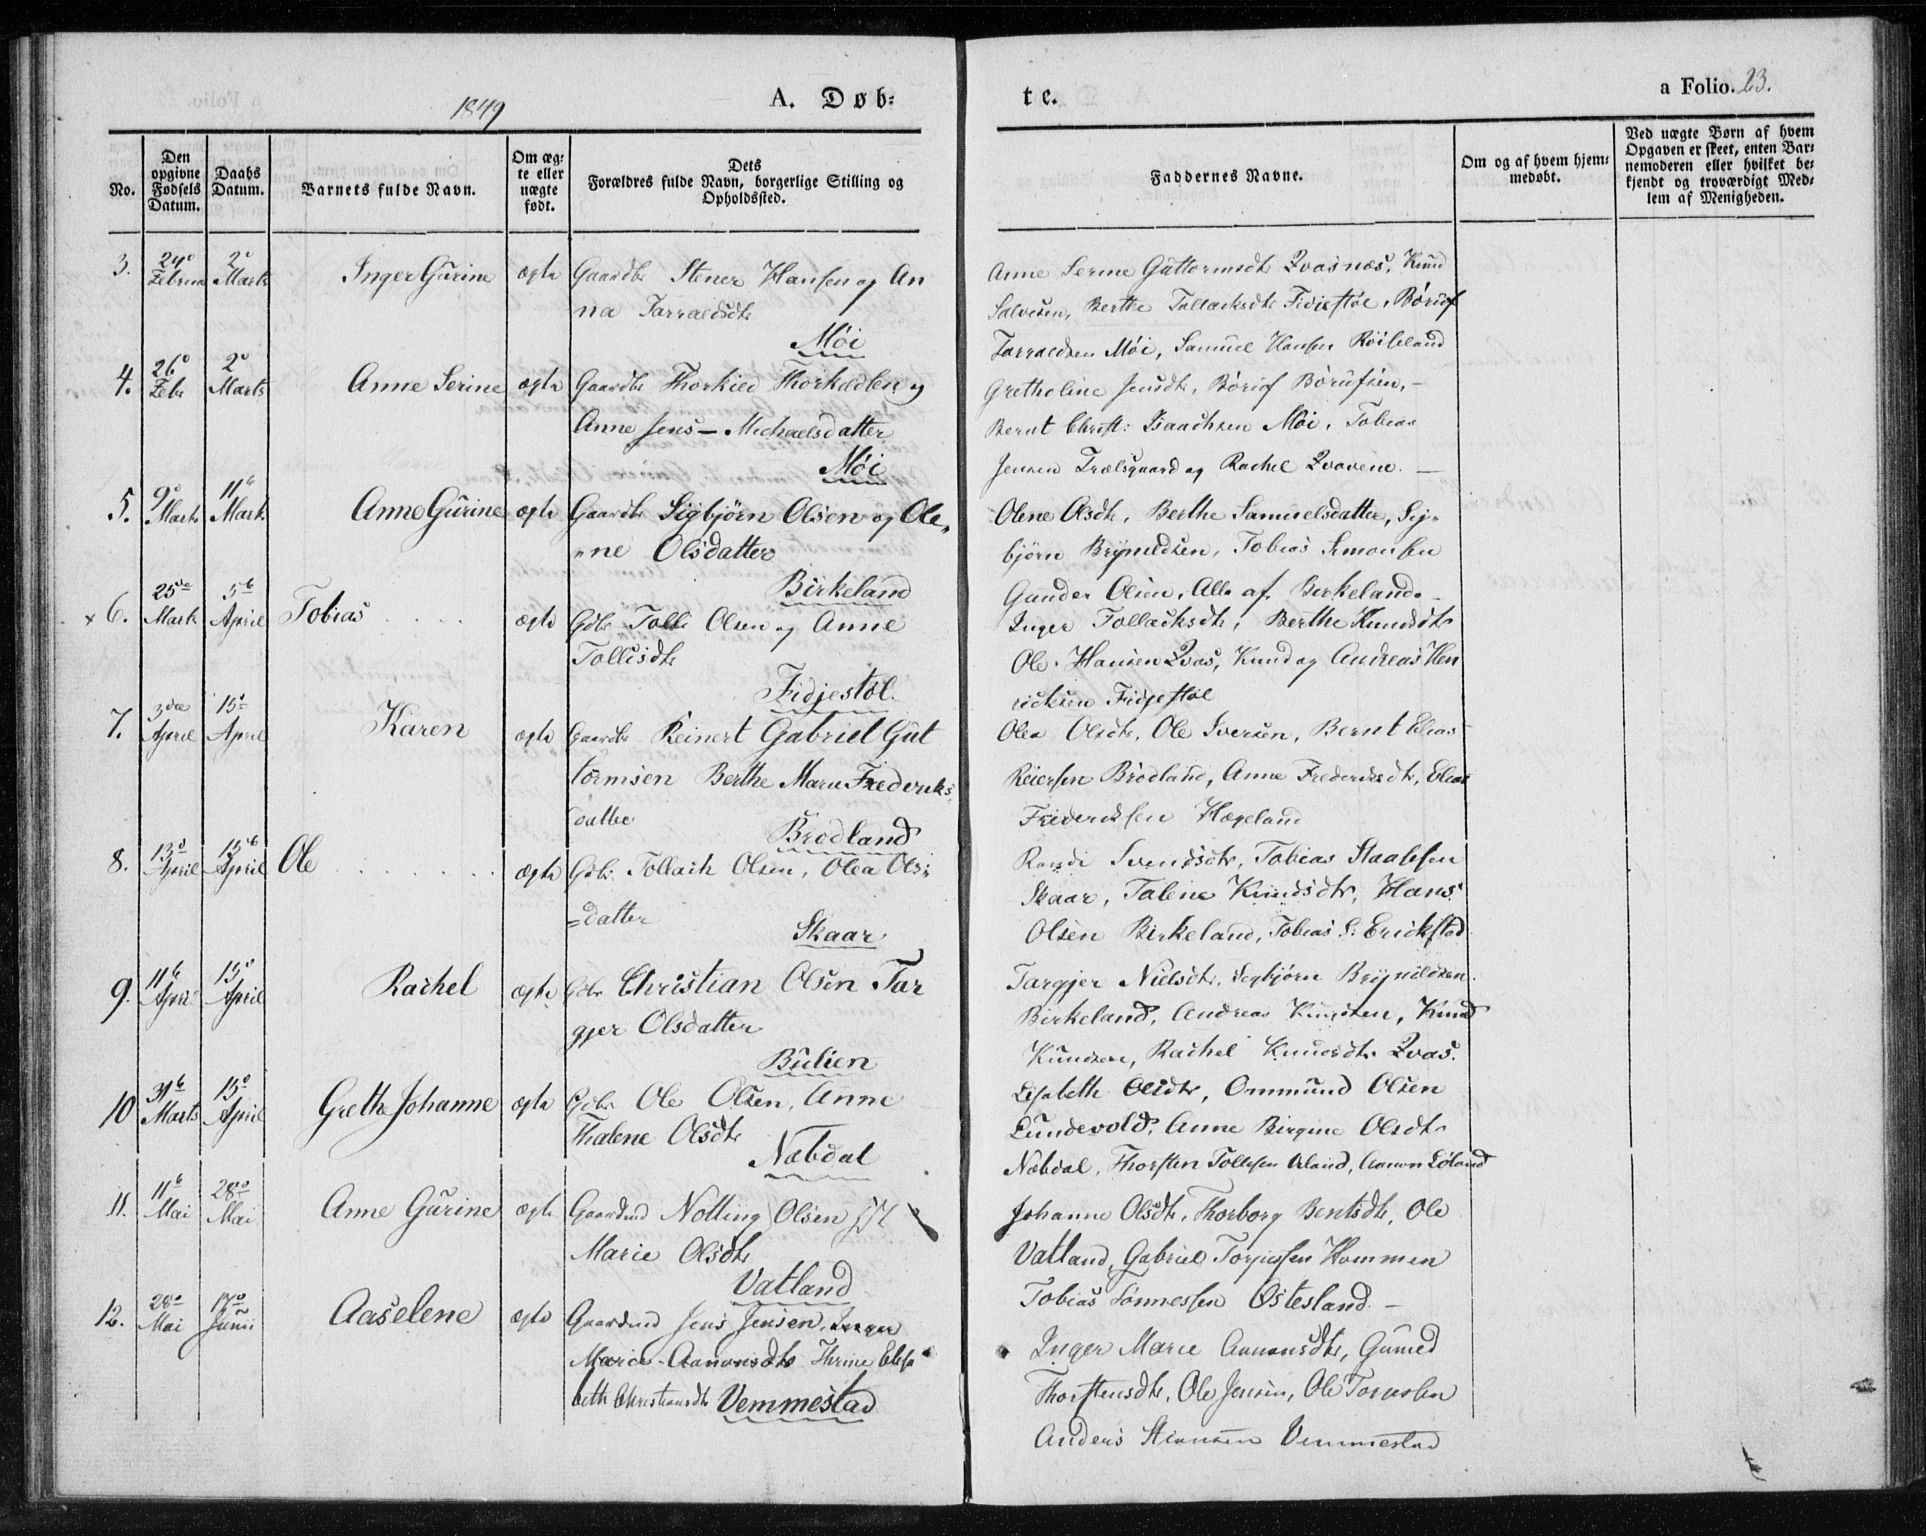 1849
A. Døb-
te.
a Folio. 23.
No.
Den opgivne Fødsels Datum.
Daabs Datum.
Barnets fulde Navn.
Om ægte eller uægte født.
Dets Forældres fulde Navn, borgerlige Stilling og Opholdssted.
Faddernes Navne.
Om og af hvem hjemmedøbt.
Ved uægte Børn af hvem Opgaven er skeet, enten Barnemoderen eller hvilket bekjendt og troværdigt Medlem af Menigheden.
3. 24 Februar 2 Marts Inger Gurine ægte Gaardbr Stener Hansen og An
na Tarraldsdtr
Møi
Anne Serine Guttormsdtr Qvasnæs, Knud
Salvesen, Berthe Tollacksdtr Fidjestøl, Børuf
Tarraldsen Møi, Samuel Hansen Röiseland
4. 26 Febr 2 Marts Anne Serine ægte Gaardbr Thorkied Thorkedlen og
Anne Jens-Michaelsdatter
Møi
Gretholine Jensdtr, Børuf Børufsen,
Bernt Christ: Isaachsen Møi, Tobias
Jensen Trælsgaard og Rachel Qvavene.
5. 9 Marts 11 Marts Anne Gurine ægte Gaardbr Sigbjørn Olsen og Ole
ne Olsdatter
Birkeland
Olene Olsdtr, Berthe Samuelsdatter, Sig-
bjørn Brynildsen, Tobias Simonsen
Gunder Olsen, Alle af Birkeland.
x 6. 25 Marts 5 April Tobias ægte Gdbr Tolle Olsen og Anne
Tollisdtr
Fidjestøl.
Inger Tollacksdtr, Berthe Knudsdtr
Ole Hansen Qvas, Knud og Andreas Hen
richsen Fidjestøl
7. 3die April 15 April Karen ægte Gaardbr Reinert Gabriel Gut
tormsen Berthe Marie Frederiks
datter
Brødland
Olea Olsdtr, Ole Iversen, Bernt Elias
Reiersen Brødland, Anne Frederiksdtr, Elias
Frideriksen Hægeland
8. 13 April 15 April Ole ægte Gdbr Tollack Olsen, Olea Ols
datter
Skaar
Randi Svendsdtr, Tobias Staalesen
Skaar, Talene Knudsdtr, Hans
Olsen Birkeland, Tobias S: Erickstad
9. 11 April 15 April Rachel ægte Gdbr Christian Olsen Tar
gjer Olsdatter
Bulien
Targjer Nielsdtr, Segbjørn Brynildsen
Birkeland, Andreas Knudsen, Knud
Knudsen, Rachel Knudsdtr Qvas.
10 31 Marts 15 April Grethe Johanne ægte Gdbr Ole Olsen, Anne
Thalene Olsdtr
Næbdal
Lisabeth Olsdtr, Ommund Olsen
Lundevold, Anne Birgine Olsdtr
Næbdal, Thorsten Tollefsen Urland, Aanon Løland
11. 11 Mai 28 Mai Anne Gurine ægte Gaardmd Notting Olsen
Marie Olsdtr
Vatland
Johanne Olsdtr, Thorborg Bentsdtr, Ole
Vatland, Gabriel Torjusen Hommen
Tobias Sønnesen Østesland
12. 28 Mai 17 Junii Aaselene ægte Gaardmd Jens Jensen, Inger
Marie Aanonsdtr Thrine Elisa
beth Christiansdtr Vemmestad
Inger Marie Aanonsdtr, Guned
Thorstensdtr, Ole Jensen, Ole Tornesen
Anders Stiansen Vemmestad